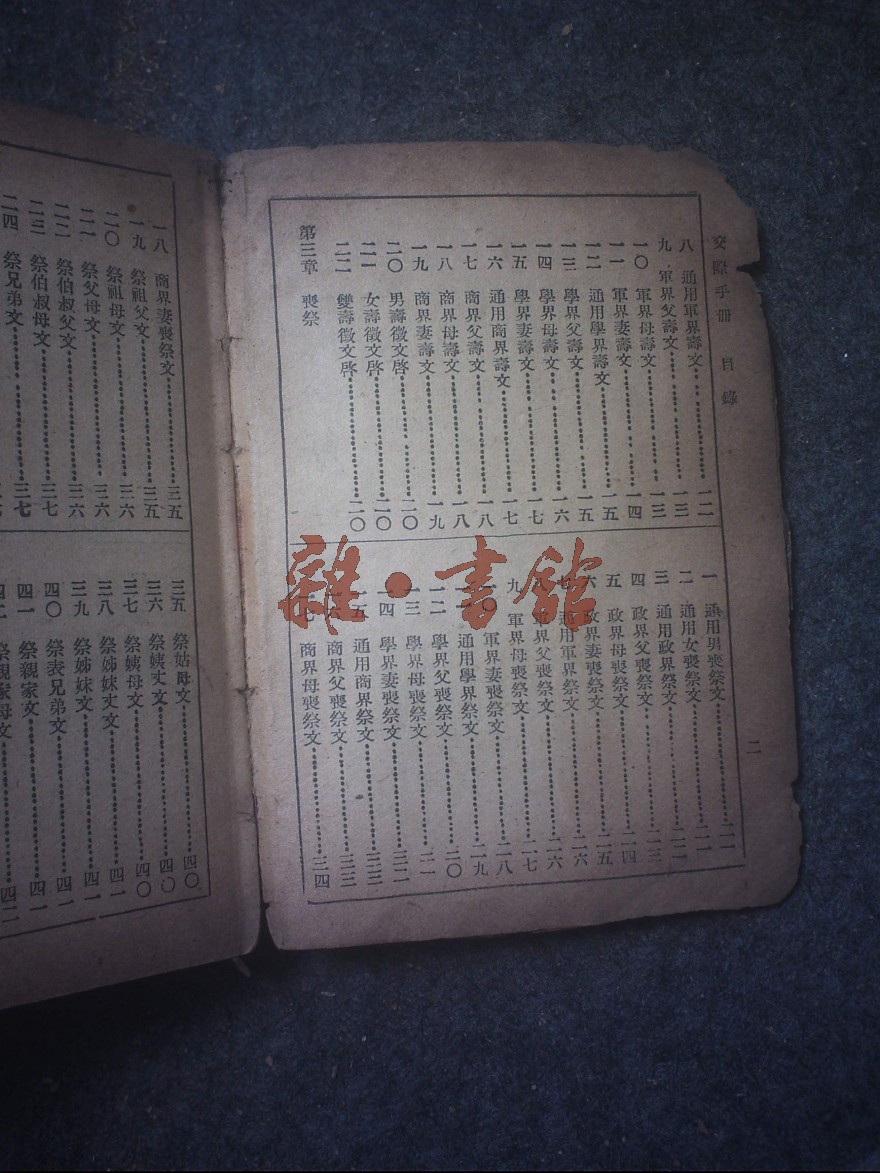 交際手册 目錄
二
八 通用軍界壽文 一二
九 軍界父壽文 一三
一〇 軍界母壽文 一三
一一 軍界妻壽文 一四
一二 通用學界壽文 一五
一三 學界父壽文 一五
一四 學界母壽文 一六
一五 學界妻壽文 一七
一六 通用商界壽文 一七
一七 商界父壽文 一八
一八 商界母壽文 一八
一九 商界妻壽文 一九
二〇 男壽徵文啓 二〇
二一 女壽徵文啓 二〇
二二 雙壽徵文啓 二〇
第三章 喪祭
一 通用男喪祭文 二一
二 通用女喪祭文 二一
三 通用政界祭文 二二
四 政界父喪祭文 二三
五 政界母喪祭文 二四
六 政界妻喪祭文 二五
七 通用軍界祭文 二六
八 軍界父喪祭文 二六
九 軍界母喪祭文 二七
一〇 軍界妻喪祭文 二八
一一 通用學界祭文 二九
一二 學界父喪祭文
一三 學界母喪祭文
一四 學界妻喪祭文
通用商界祭文 三三
商界父喪祭文 三三
商界母喪祭文 三四
一八 商界妻喪祭文 三五
一九 祭祖父文 三五
二〇 祭祖母文 三六
二一 祭父母文 三六
二二 祭伯叔父文 三七
二三 祭伯叔母文 三七
二四 祭兄弟文
三五 祭姑母文 四〇
三六 祭姨丈文 四〇
三七 祭姨母文 四〇
三八 祭姊妹丈文 四一
三九 祭姊妹文 四一
四〇 祭表兄弟文 四一
四一 祭親家文 四一
四二 祭親家母文 四二
雜·書館